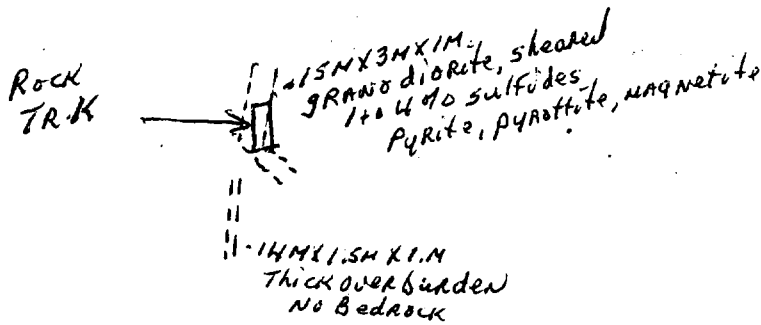 ROCK
TR.K
.15M X 3M X 1M.
gRANO diORite, sheared
1 to 4 % sulfides
PyRite, pyRottite, MAgNetite
.14M X 1.5M X 1.M
Thick overburden
No Bedrock